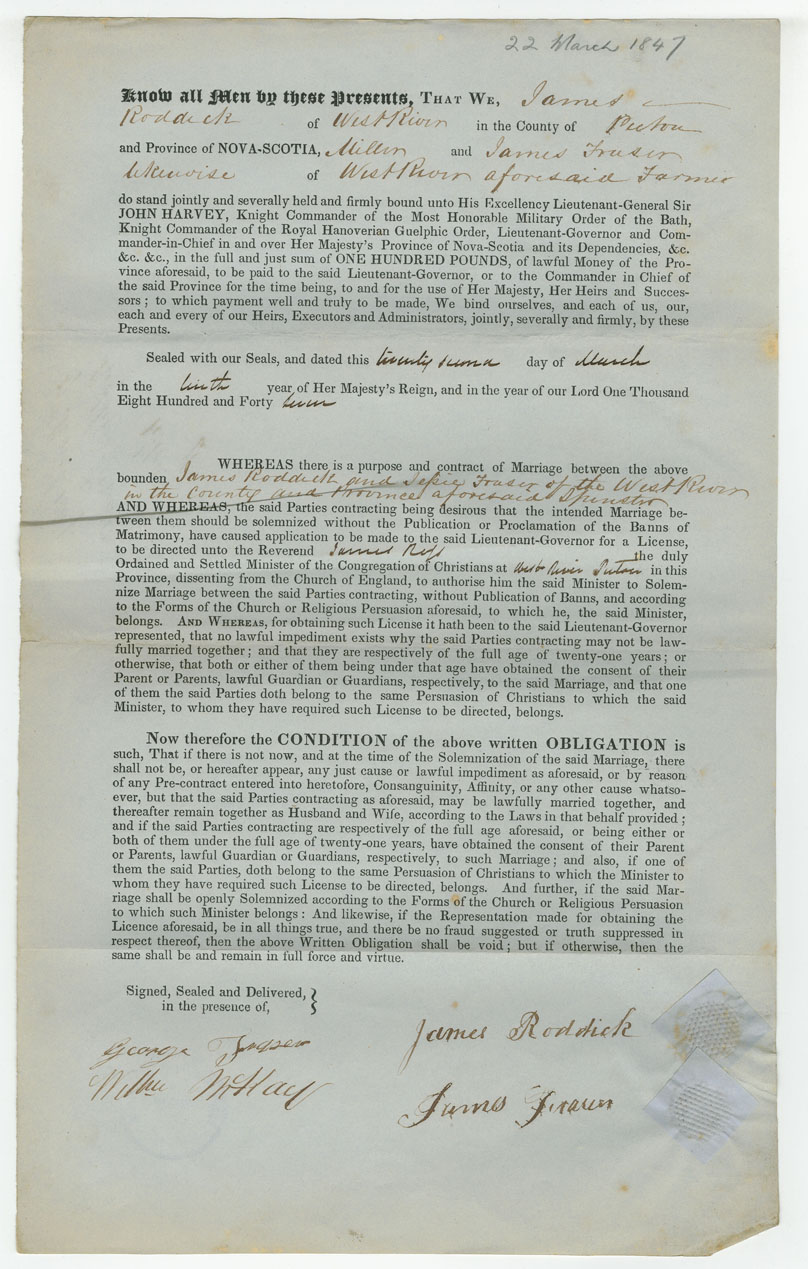 22 March 1847
Know all Men by these Presents, THAT WE, James
Roddick of West River in the County of Pictou
and Province of NOVA-SCOTIA, Miller and James Fraser
likewise of West River aforesaid Farmer
do stand jointly and severally held and firmly bound unto His Excellency Lieutenant-General Sir
JOHN HARVEY, Knight Commander of the Most Honorable Military Order of the Bath,
Knight Commander of the Royal Hanoverian Guelphic Order, Lieutenant-Governor and Com-
mander-in-Chief in and over Her Majesty's Province of Nova-Scotia and its Dependencies, &c.
&c. &c., in the full and just sum of ONE HUNDRED POUNDS, of lawful Money of the Pro-
vince aforesaid, to be paid to the said Lieutenant-Governor, or to the Commander in Chief of
the said Province for the time being, to and for the use of Her Majesty, Her Heirs and Succes-
sors; to which payment well and truly to be made, We bind ourselves, and each of us, our,
each and every of our Heirs, Executors and Administrators, jointly, severally and firmly, by these
Presents.
Sealed with our Seals, and dated this twenty second day of March
in the tenth year of Her Majesty's Reign, and in the year of our Lord One Thousand
Eight Hundred and Forty seven
WHEREAS there is a purpose and contract of Marriage between the above
bounden James Roddick and Fraser of the West River
in the County and Province aforesaid Spinster
AND WHEREAS, the said Parties contracting being desirous that the intended Marriage be-
tween them should be solemnized without the Publication or Proclamation of the Banns of
Matrimony, have caused application to be made to the said Lieutenant-Governor for a License,
to be directed unto the Reverend James Ross the duly
Ordained and Settled Minister of the Congregation of Christians at West River Pictou in this
Province, dissenting from the Church of England, to authorise him the said Minister to Solem-
nize Marriage between the said Parties contracting, without Publication of Banns, and according
to the Forms of the Church or Religious Persuasion aforesaid, to which he, the said Minister,
belongs. AND WHEREAS, for obtaining such License it hath been to the said Lieutenant-Governor
represented, that no lawful impediment exists why the said Parties contracting may not be law-
fully married together; and that they are respectively of the full age of twenty-one years; or
otherwise, that both or either of them being under that age have obtained the consent of their
Parent or Parents, lawful Guardian or Guardians, respectively, to the said Marriage, and that one
of them the said Parties doth belong to the same Persuasion of Christians to which the said
Minister, to whom they have required such License to be directed, belongs.
Now therefore the CONDITION of the above written OBLIGATION is
such, That if there is not now, and at the time of the Solemnization of the said Marriage, there
shall not be, or hereafter appear, any just cause or lawful impediment as aforesaid, or by reason
of any Pre-contract entered into heretofore, Consanguinity, Affinity, or any other cause whatso-
ever, but that the said Parties contracting as aforesaid, may be lawfully married together, and
thereafter remain together as Husband and Wife, according to the Laws in that behalf provided;
and if the said Parties contracting are respectively of the full age aforesaid, or being either or
both of them under the full age of twenty-one years, have obtained the consent of their Parent
or Parents, lawful Guardian or Guardians, respectively, to such Marriage; and also, if one of
them the said Parties, doth belong to the same Persuasion of Christians to which the Minister to
whom they have required such License to be directed, belongs. And further, if the said Mar-
riage shall be openly Solemnized according to the Forms of the Church or Religious Persuasion
to which such Minister belongs: And likewise, if the Representation made for obtaining the
Licence aforesaid, be in all things true, and there be no fraud suggested or truth suppressed in
respect thereof, then the above Written Obligation shall be void; but if otherwise, then the
same shall be and remain in full force and virtue.
Signed, Sealed and Delivered,
in the presence of,
James Roddick
George Fraser
McKay
James Fraser